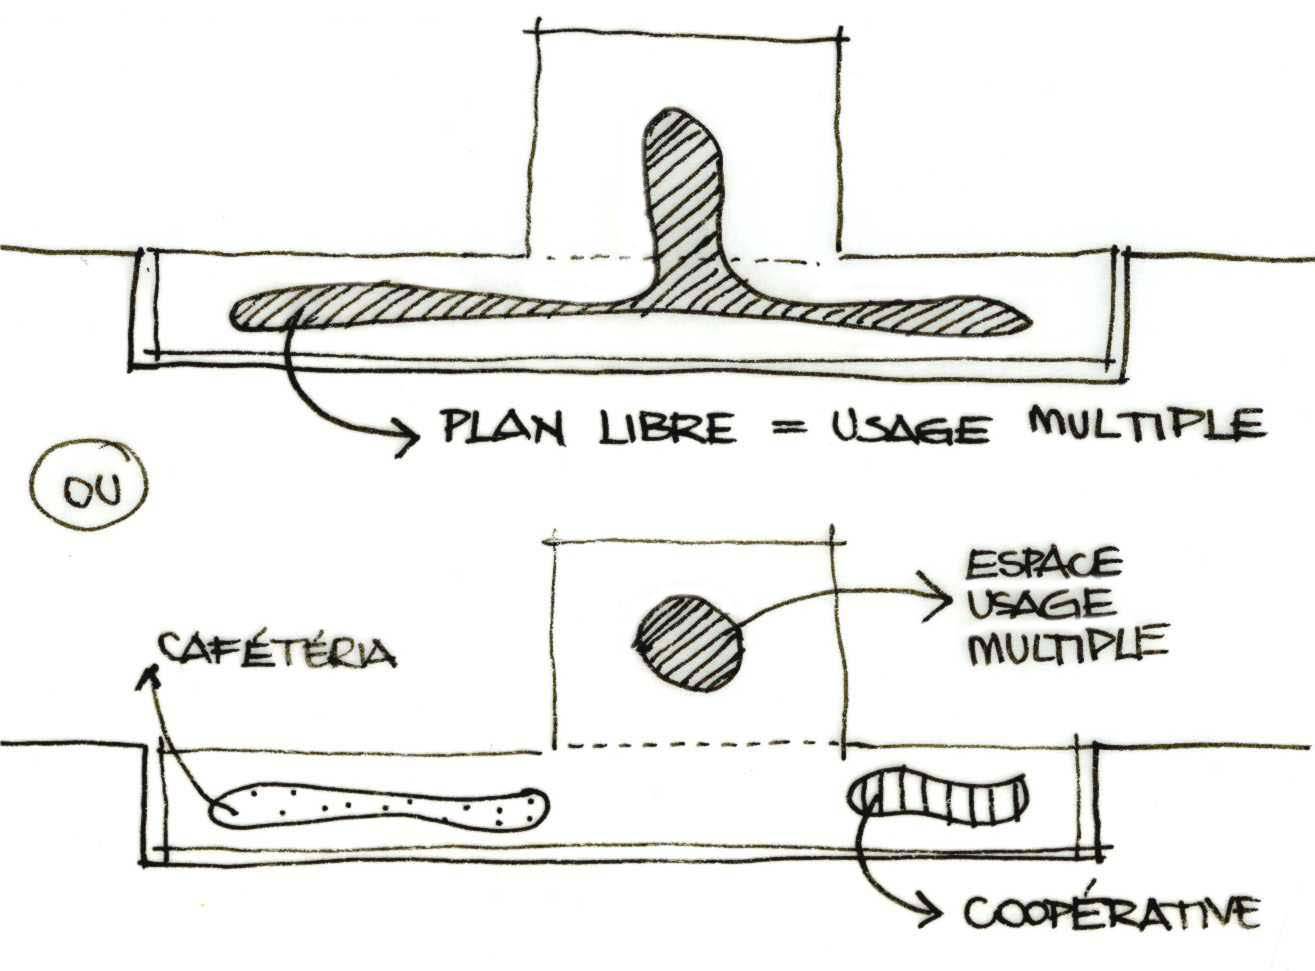 PLAN LIBRE = USAGE MULTIPLE
OU
ESPACE
USAGE
MULTIPLE
CAFÉTÉRIA
COOPÉRATIVE